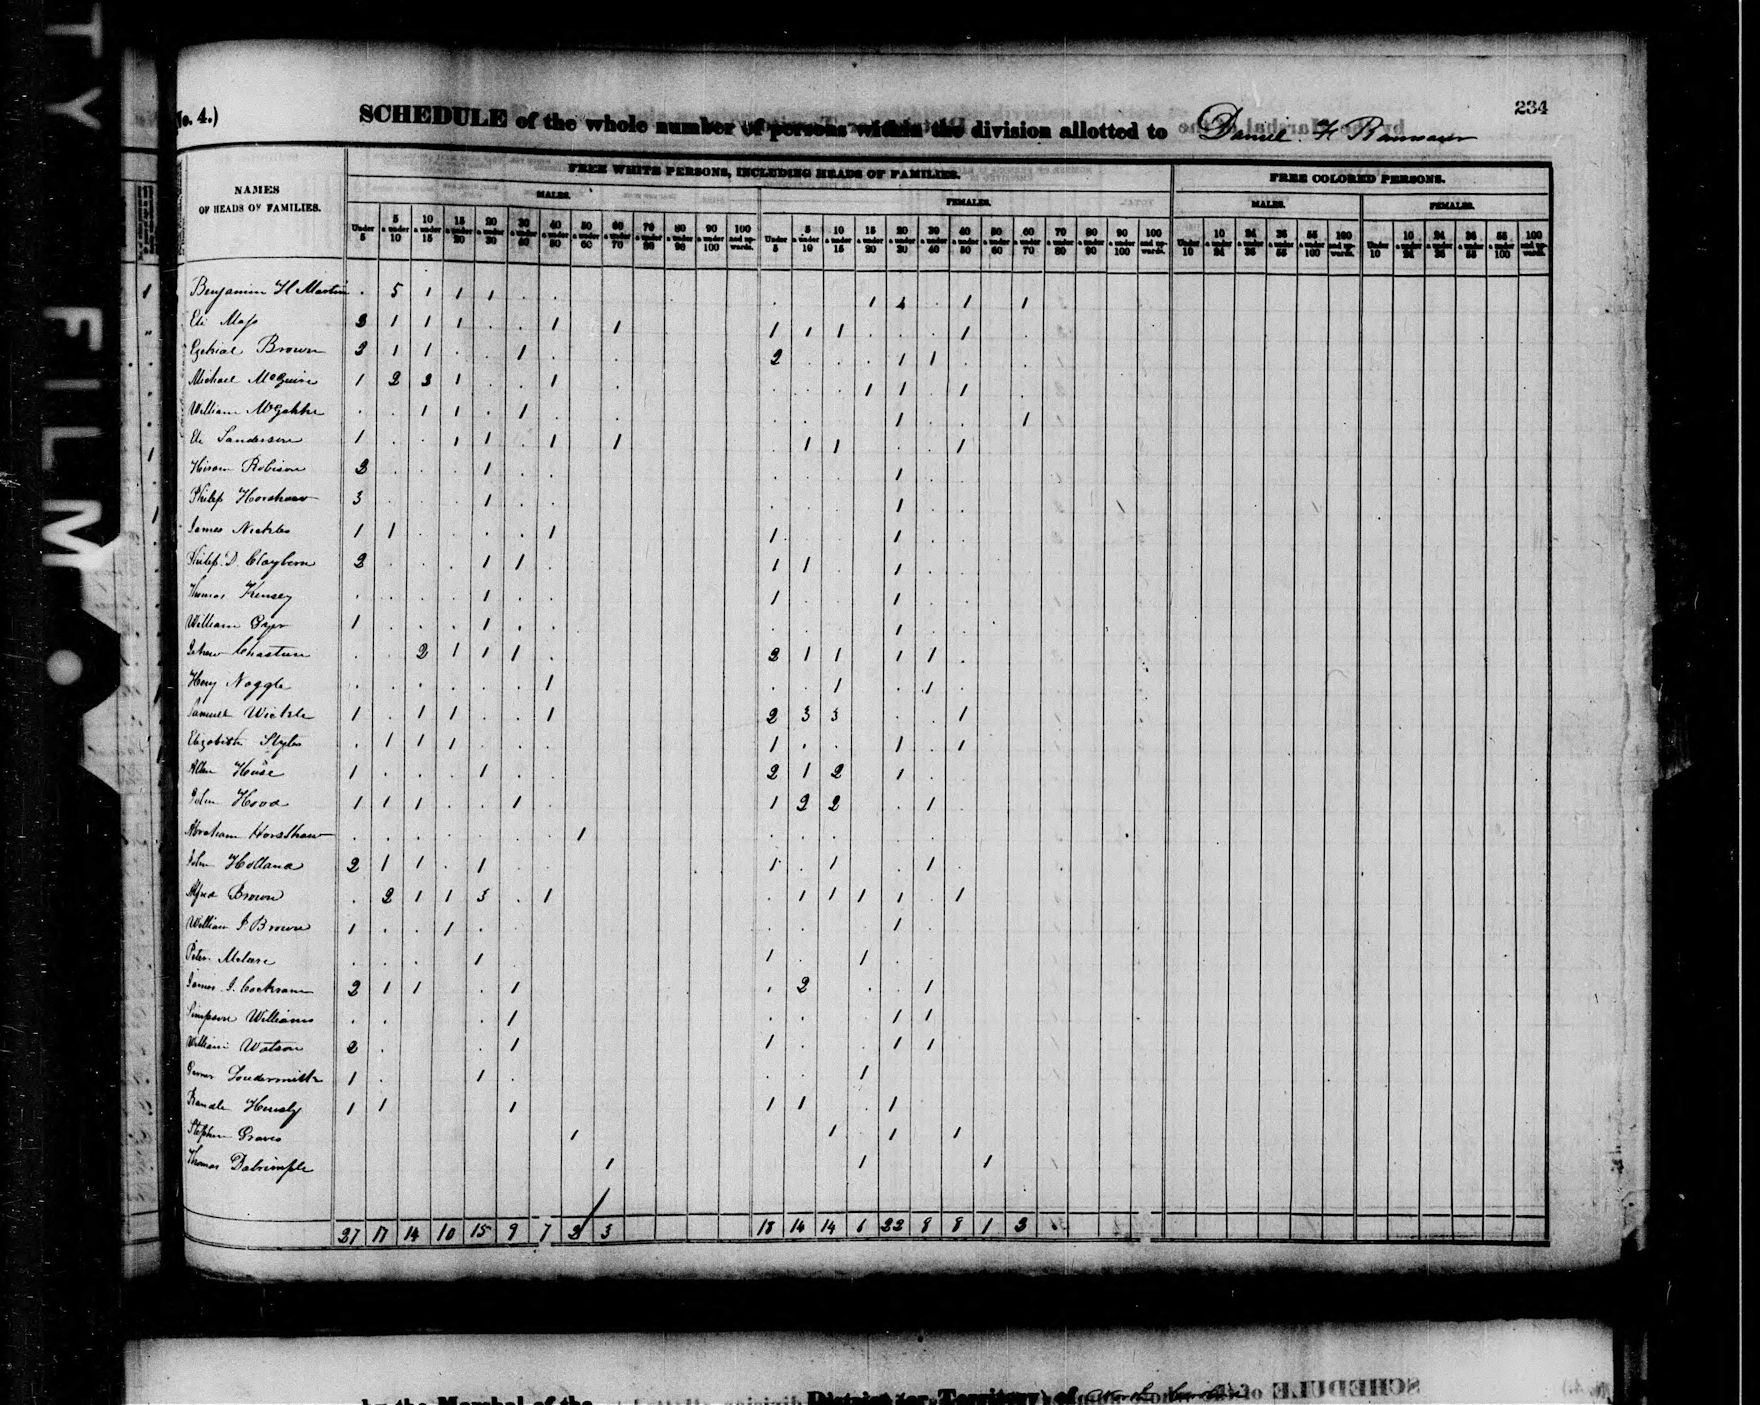 TY FILM
234
(No. 4.)
SCHEDULE of the whole number of persons within the division allotted to Daniel H
NAMES OF HEADS OF FAMILIES.
FREE WHITE PERSONS, INCLUDING HEADS OF FAMILIES.
FREE COLORED PERSONS.
MALES. FEMALES. MALES. FEMALES.
Under 5 5 & under 10 10 & under 15 15 & under 20 20 & under 30 30 & under 40 40 & under 50 50 & under 60 60 & under 70 70 & under 80 80 & under 90 90 & under 100 100 and upwards.
Under 5 5 & under 10 10 & under 15 15 & under 20 20 & under 30 30 & under 40 40 & under 50 50 & under 60 60 & under 70 70 & under 80 80 & under 90 90 & under 100 100 and upwards.
Under 10 10 & under 24 24 & under 36 36 & under 55 55 & under 100 100 and upwards.
Under 10 10 & under 24 24 & under 36 36 & under 55 55 & under 100 100 and upwards.
Benjamin H Martin 5 1 1 1 1 1 1
Eli 3 1 1 1 1 1 1 1 1 1
Ezekial Brown 1 1 1 2 1 1
Michael McGuire 1 2 3 1 1 1 1 1
William 1 1 1 1 1
Eli Sanderson 1 1 1 1 1 1 1 1
Hiram Robison 1 1
Philip Horshaw 3 1 1
James Nickles 1 1 1 1 1
Philip D. Clayburn 1 1 1 1 1
Thomas Kensey 1 1 1
William 1 1 1
Chasteen 2 1 1 1 2 1 1 1 1
Henry Noggle 1 1 1
Samuel Wickle 1 1 1 1 2 3 3 1
Elizabeth Styles 1 1 1 1 1 1
Allen House 1 1 2 1 2 1
John Hood 1 1 1 1 1 2 2 1
Abraham Horsthaw 1
John Holland 2 1 1 1 1 1 1
Alfred Brown 2 1 1 3 1 1 1 1 1 1
William J Brown 1 1 1
Peter 1 1 1
James J. Cockram 2 1 1 1 2 1
Simpson Williams 1 1 1
William Watson 2 1 1 1 1
Loudermilk 1 1 1
Hensly 1 1 1 1 1 1
Stephen Graves 1 1 1 1
Thomas Dalrimple 1 1 1
27 17 14 10 15 9 7 2 3 18 14 14 6 22 8 8 1 2
by the Marshal of the District (or Territory) of North Carolina